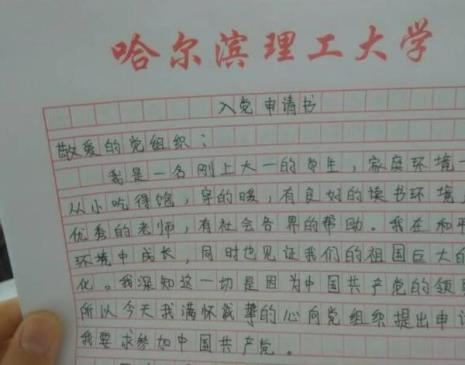 哈尔滨理工大学
入党申请书
敬爱的党组织：
我是一名刚上大一的学生，家庭环境一
从小吃得饱，穿的暖，有良好的读书环境，
优秀的老师，有社会各界的帮助。我在和平
环境中成长，同时也见证我们的祖国巨大的
化。我深知这一切是因为中国共产党的领导
所以今天我满怀诚挚的心向党组织提出申请
我要求参加中国共产党。